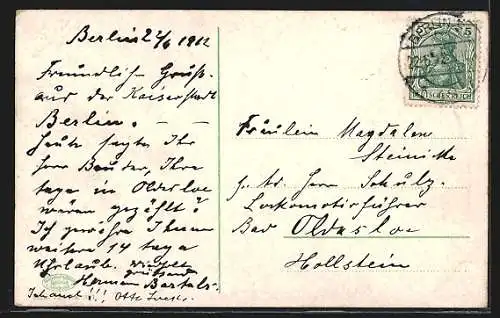 Berlin 22/6 1912
Freundlich Gruß
aus der Kaiserstadt
Berlin. –
Heute sagte Ihr
Herr Bruder, Ihre
tage in Oldesloe
wären gezählt!
Ich gewähre Ihnen
weitere 14 tage
Uhrlaub.
grüßend
Herman Bartals.
Otto
BERLIN
5
DEUTSCHES REICH
Fräulein Magdalen
Steinike
p. ad. Herr Schulz
Lokomotivführer
Bad Oldesloe
Hollstein